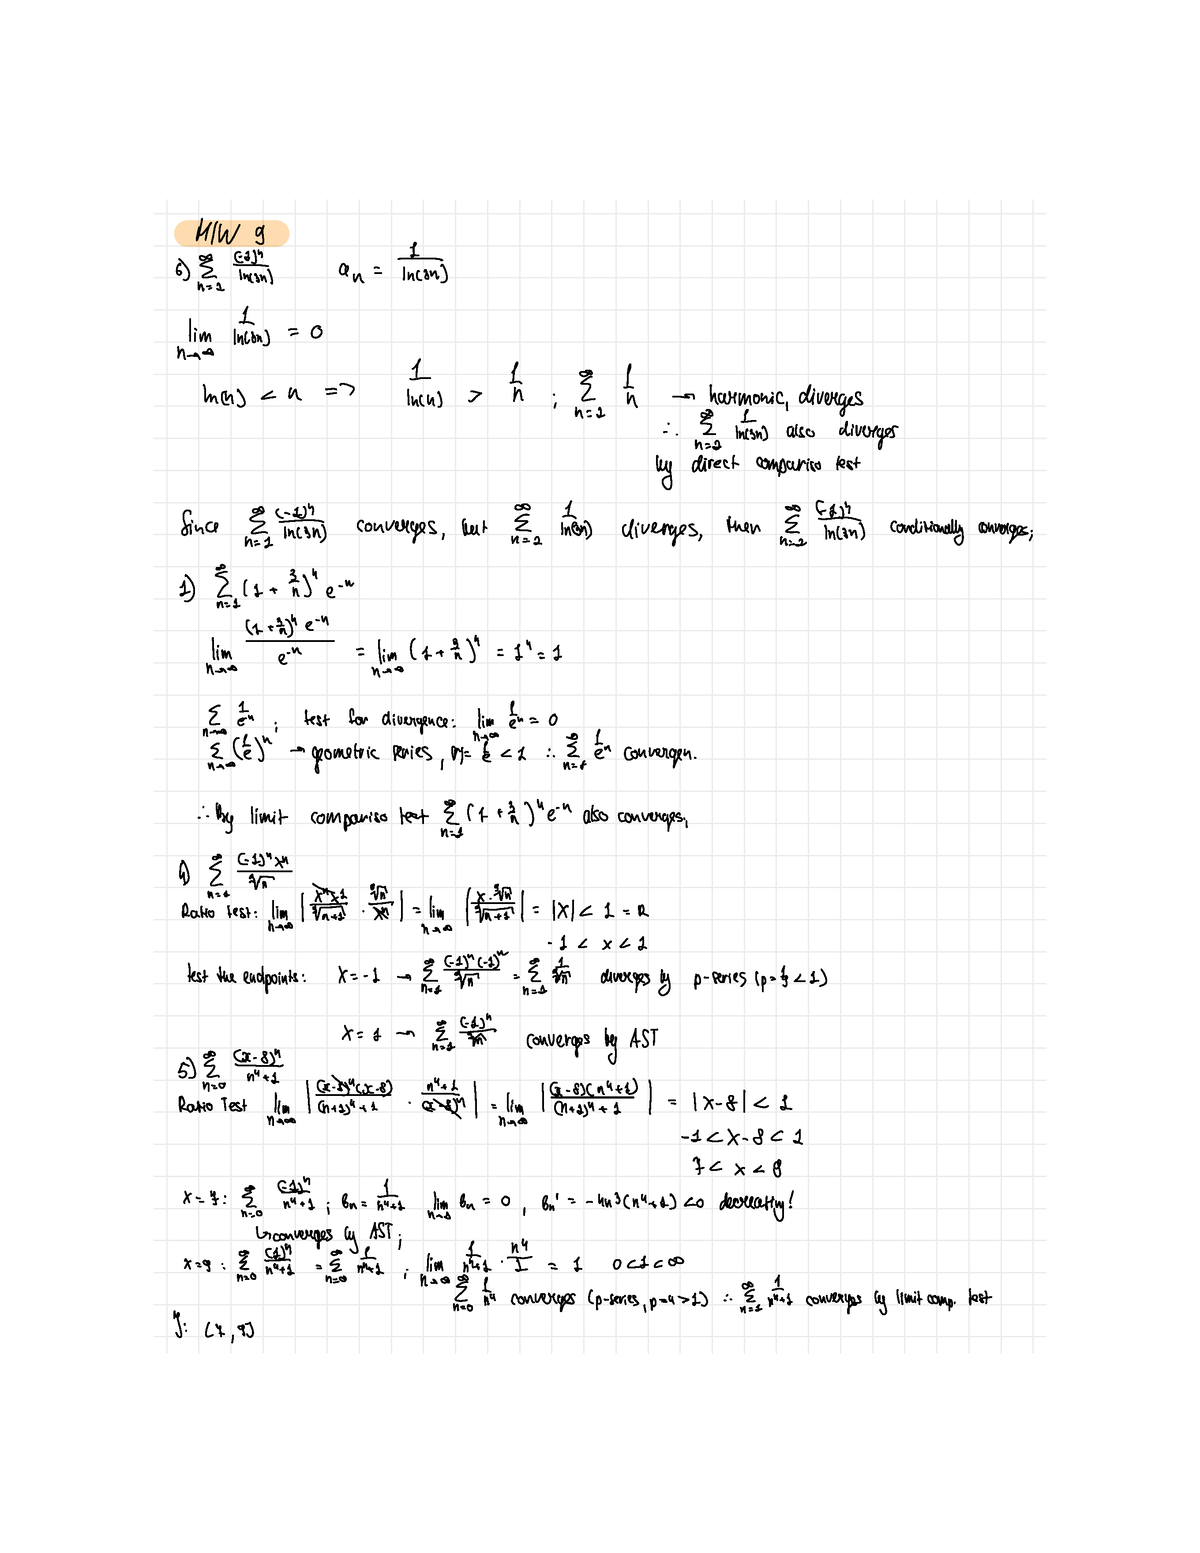 H/W 9
6) ∑_{n=2}^{∞} (-1)^n / ln(3n)   a_n = 1 / ln(3n)
lim_{n→∞} 1 / ln(3n) = 0
ln(n) < n => 1 / ln(n) > 1/n ; ∑_{n=2}^{∞} 1/n → harmonic, diverges
∴ ∑_{n=2}^{∞} 1 / ln(3n) also diverges
by direct compariso test
Since ∑_{n=2}^{∞} (-1)^n / ln(3n) converges, but ∑_{n=2}^{∞} 1 / ln(3n) diverges, then ∑_{n=2}^{∞} (-1)^n / ln(3n) conditionally converges;
1) ∑_{n=1}^{∞} (1 + 3/n)^4 e^{-n}
lim_{n→∞} (1 + 3/n)^4 e^{-n} / e^{-n} = lim_{n→∞} (1 + 3/n)^4 = 1^4 = 1
∑_{n→∞} 1/e^n ; test for divergence: lim_{n→∞} 1/e^n = 0
∑_{n→∞} (1/e)^n → geometric series, r = 1/e < 1 ∴ ∑_{n=1}^{∞} 1/e^n convergen.
∴ By limit compariso test ∑_{n=1}^{∞} (1 + 3/n)^4 e^{-n} also converges,
4) ∑_{n=1}^{∞} (-1)^n x^n / ∛n
Ratio test: lim_{n→∞} | x^n x1 / ∛(n+1) · ∛n / x^n | = lim_{n→∞} | x·∛n / ∛(n+1) | = |x| < 1 = R
-1 < x < 1
test the endpoints: x = -1 → ∑_{n=1}^{∞} (-1)^n (-1)^n / ∛n = ∑_{n=1}^{∞} 1 / ∛n diverges by p-series (p = 1/3 < 1)
x = 1 → ∑_{n=1}^{∞} (-1)^n / ∛n converges by AST
5) ∑_{n=0}^{∞} (x-8)^n / n^4+1
Ratio Test lim_{n→∞} | (x-8)^n (x-8) / (n+1)^4+1 · n^4+1 / (x-8)^n | = lim_{n→∞} | (x-8)(n^4+1) / (n+1)^4+1 | = |x-8| < 1
-1 < x-8 < 1
7 < x < 8
x = 7: ∑_{n=0}^{∞} (-1)^n / n^4+1 ; b_n = 1 / n^4+1 lim_{n→∞} b_n = 0, b_n' = -4n^3(n^4+1) <0 decreasing!
↳ converges by AST;
x = 9: ∑_{n=0}^{∞} (1)^n / n^4+1 = ∑_{n=0}^{∞} 1 / n^4+1 ; lim_{n→∞} 1 / n^4+1 · n^4 / 1 = 1   0<1<∞
∑_{n=0}^{∞} 1/n^4 converges (p-series, p=4>1) ∴ ∑_{n=1}^{∞} 1 / n^4+1 converges by limit comp. test
J: [7, 9]